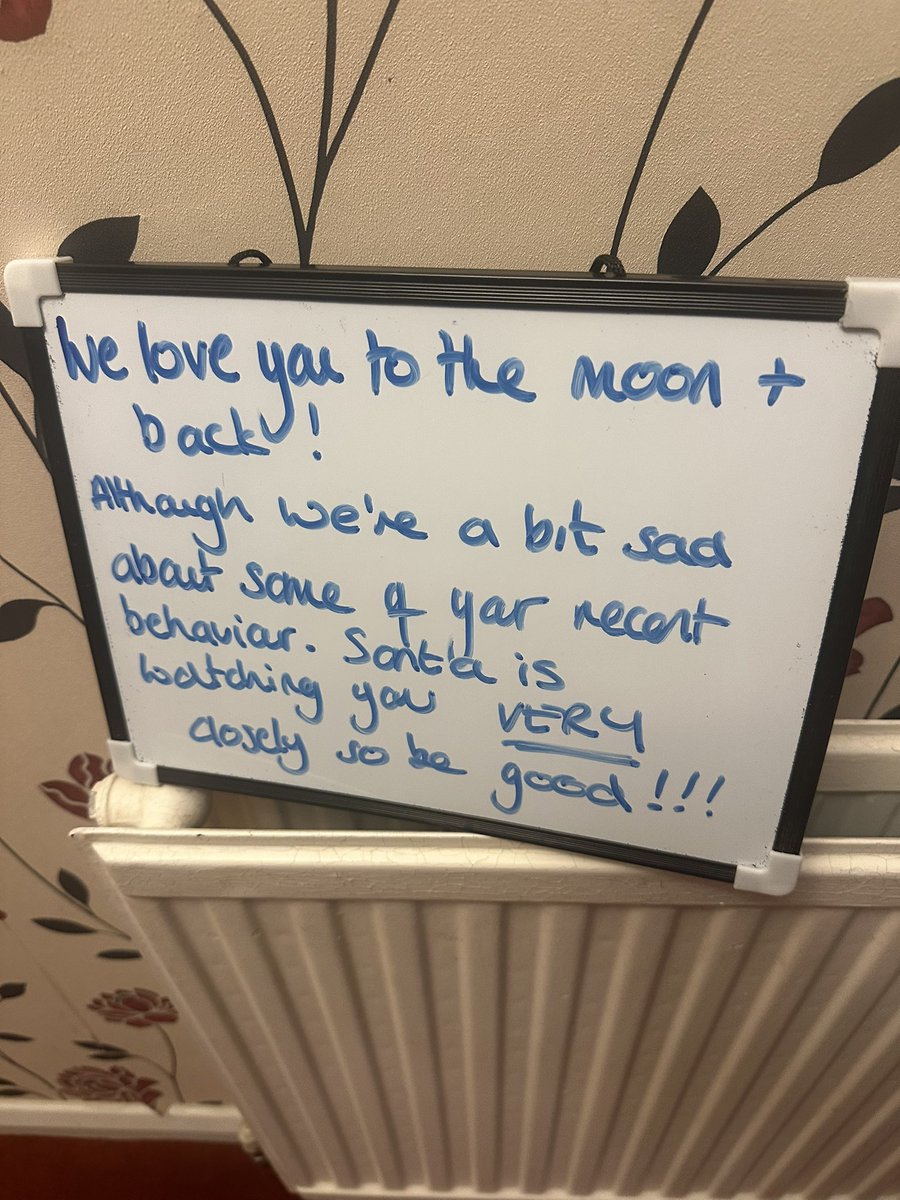 We love you to the moon +
back!
Although we're a bit sad
about some of your recent
behaviour. Santa is
watching you VERY
closely so be good!!!